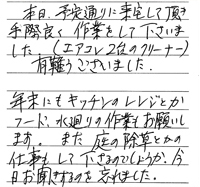 本日、予定通りに来宅して頂き
手際良く作業をして下さいま
した。(エアコン2台のクリーナー)
有難うございました。
年末にもキッチンのレンジとか
フード、水廻りの作業もお願いし
ます。また庭の除草とかの
仕事もして下さるのでしょうか、今
日お聞きするのを忘れました。